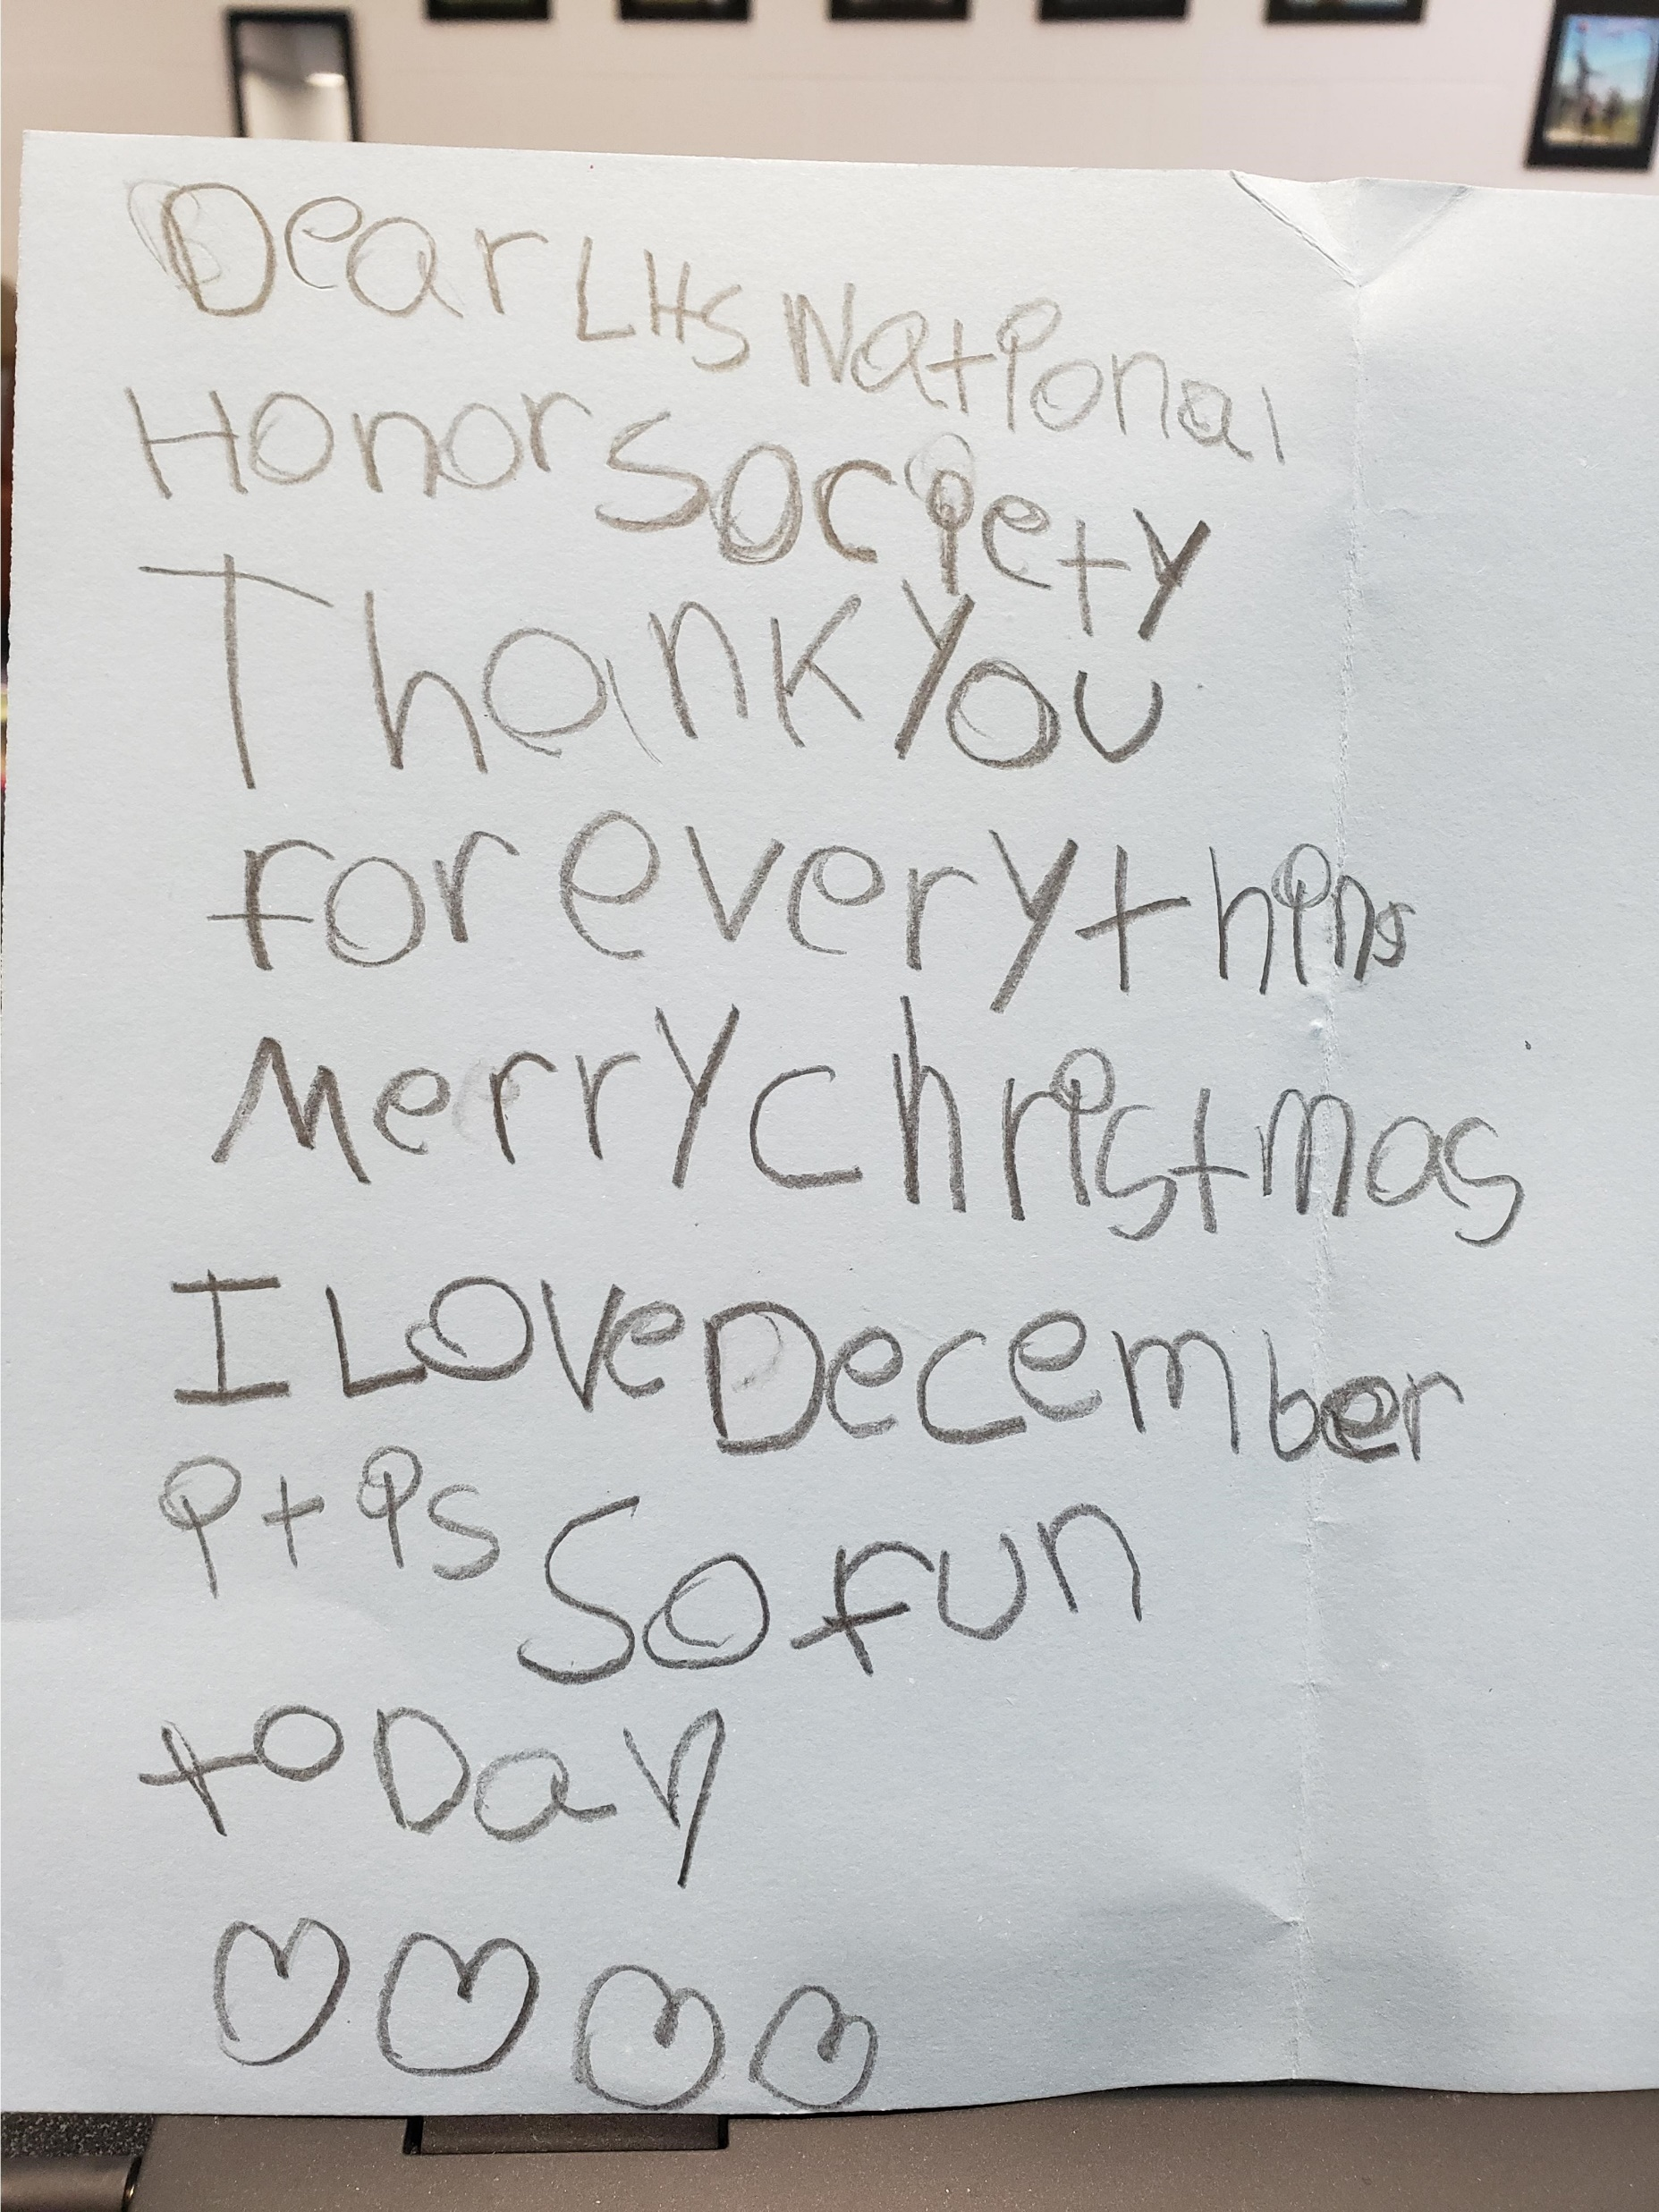 Dear LHS National
Honor Society
Thank You
for everything
Merry christmas
I Love December
it is So fun
toDay